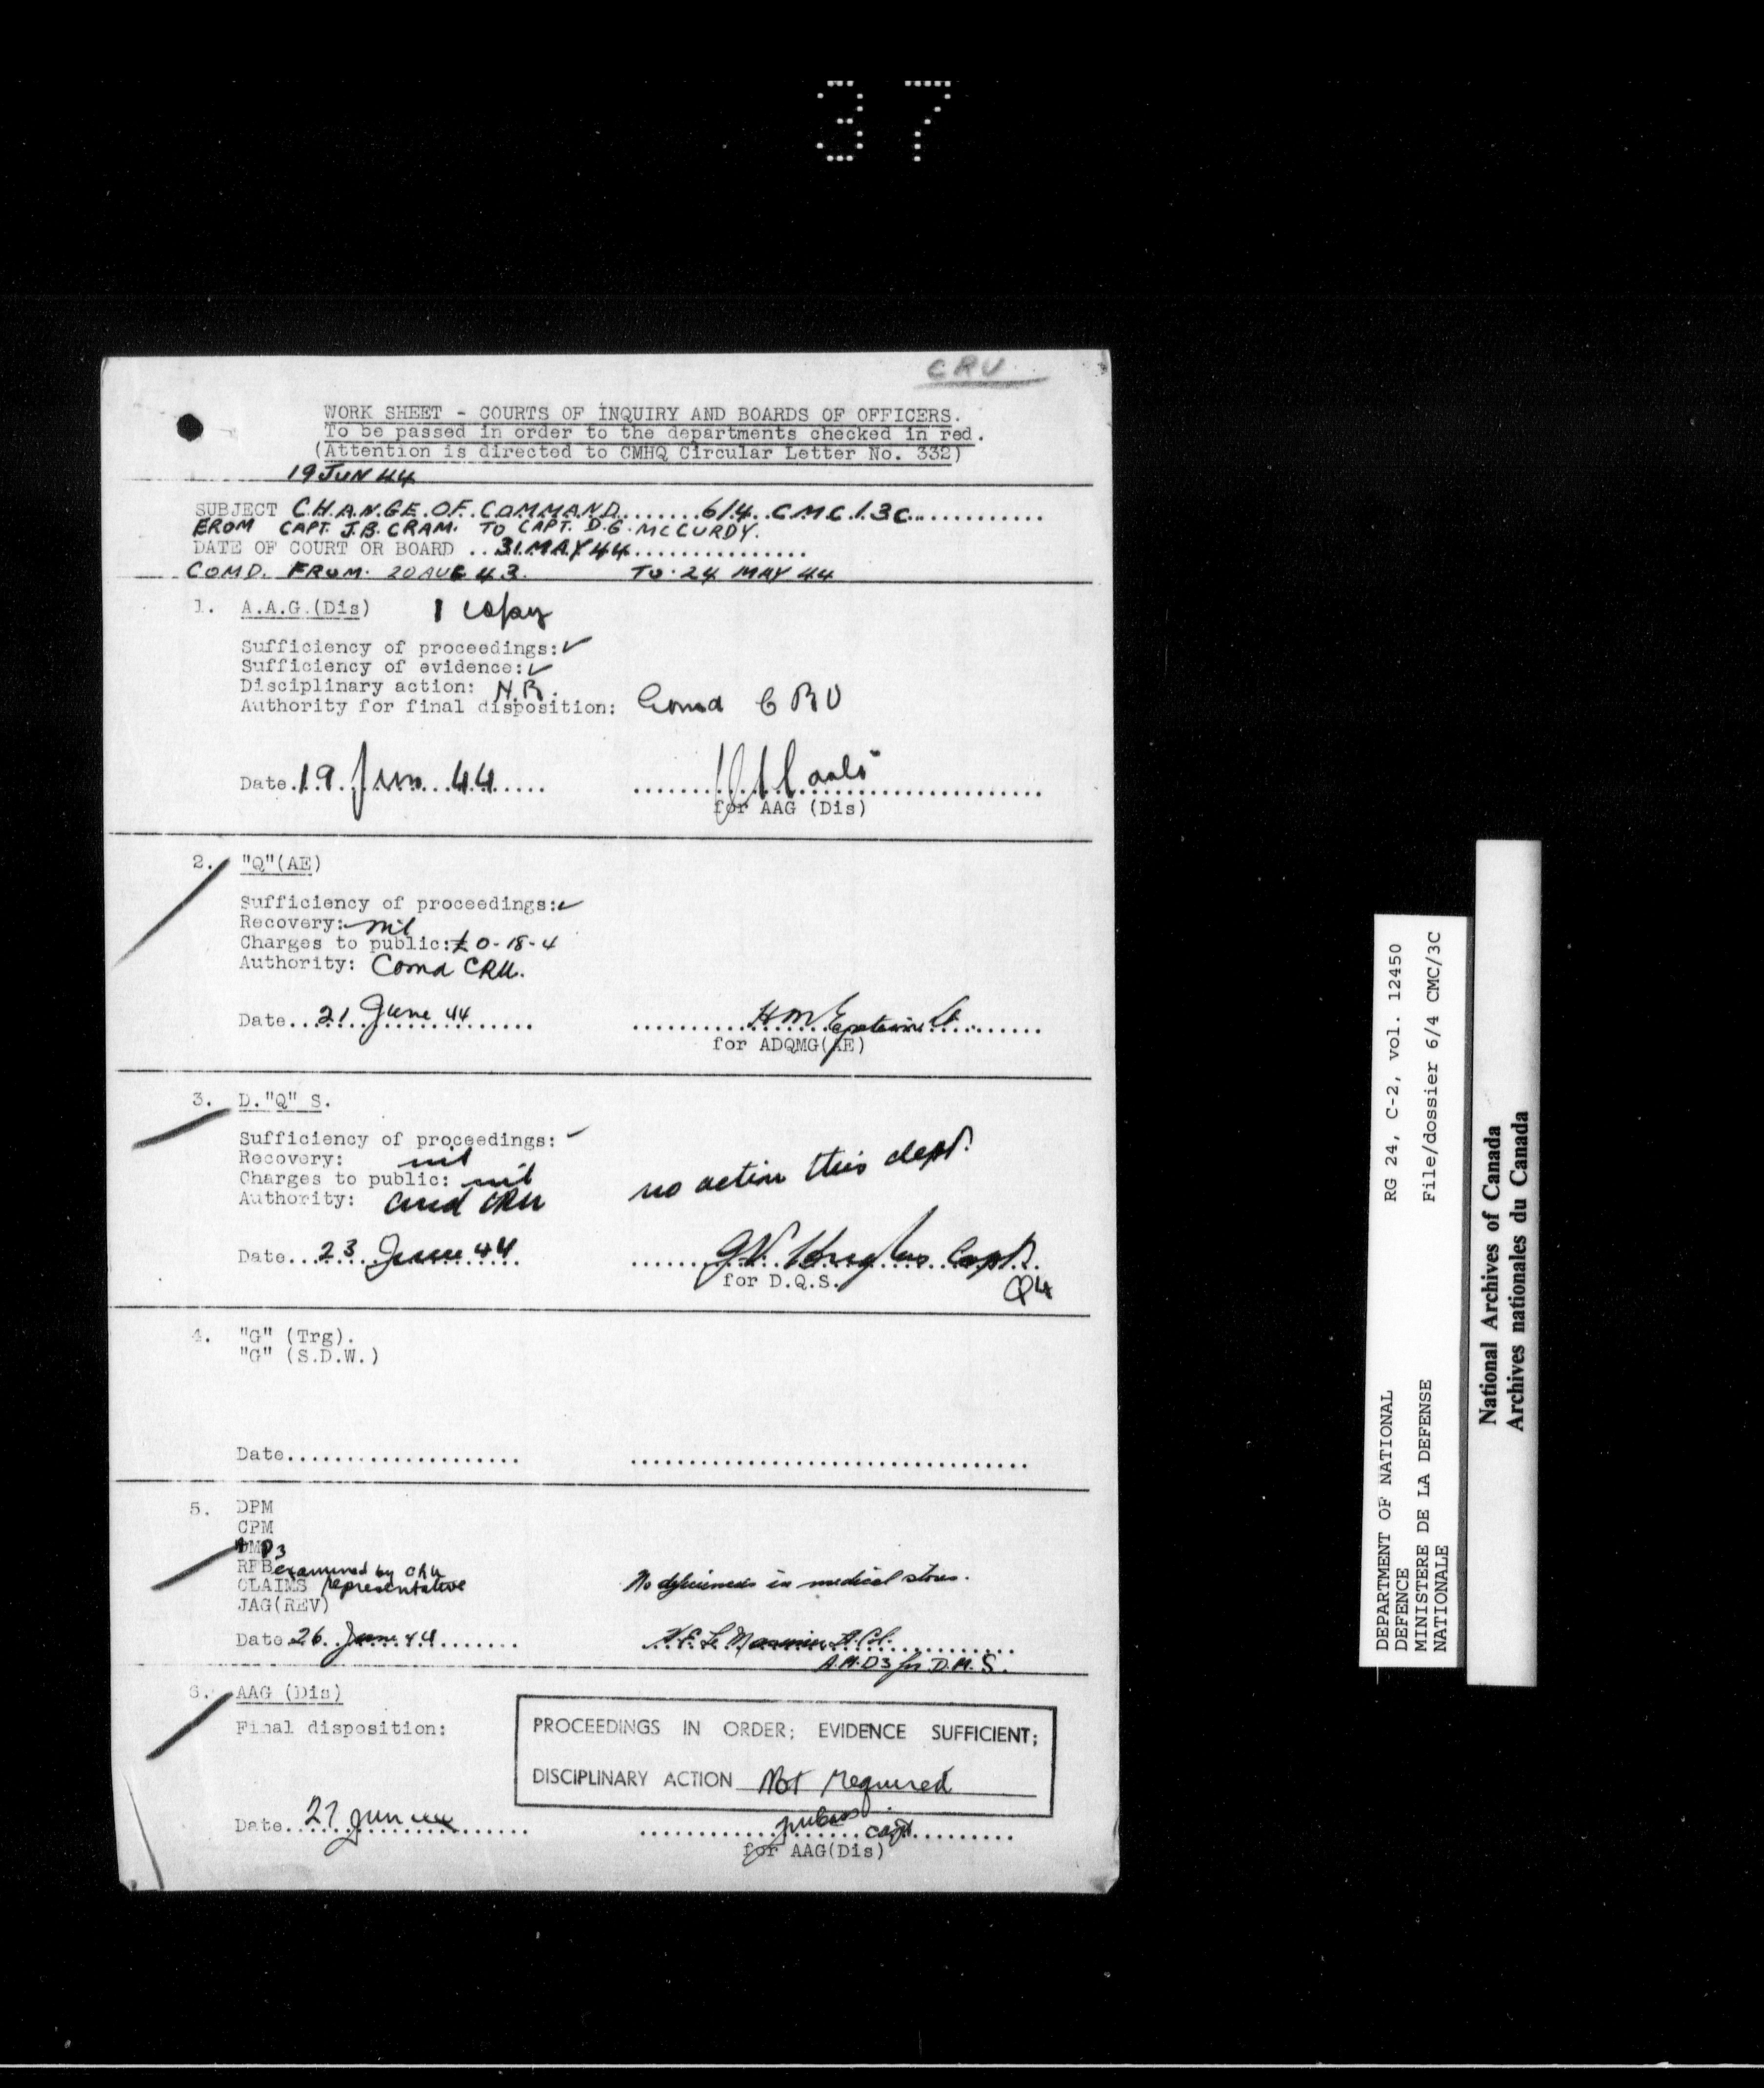 37
CRU
WORK SHEET - COURTS OF INQUIRY AND BOARDS OF OFFICERS.
To be passed in order to the departments checked in red.
(Attention is directed to CMHQ Circular Letter No. 332)
19 JUN 44
SUBJECT CHANGE OF COMMAND 6/4 CMC/3C
FROM CAPT. J.B. CRAM. TO CAPT. D.G. MCCURDY.
DATE OF COURT OR BOARD 31 MAY 44
COMD. FROM 20 AUG 43. TO 24 MAY 44
1. A.A.G.(Dis) 1 copy
Sufficiency of proceedings: ✓
Sufficiency of evidence: ✓
Disciplinary action: N.R.
Authority for final disposition: Comd CRU
Date 19 Jun 44
for AAG (Dis)
2. "Q"(AE)
Sufficiency of proceedings: ✓
Recovery: nil
Charges to public: £0-18-4
Authority: Comd CRU.
Date 21 June 44 H M Epstein Lt.
for ADQMG(AE)
3. D."Q" S.
Sufficiency of proceedings: ✓
Recovery: nil
Charges to public: nil
Authority: Comd CRU no action this dept.
Date 23 June 44 Capt.
for D.Q.S. Q4
4. "G" (Trg).
"G" (S.D.W.)
Date
5. DPM
CPM
RFB examined by CRU
CLAIMS representative No deficiencies in medical stores.
JAG(REV)
Date 26 June 44
A.M.D3 for D.M.S.
6. AAG (Dis)
Final disposition:
PROCEEDINGS IN ORDER; EVIDENCE SUFFICIENT;
DISCIPLINARY ACTION Not required
Date 27 Jun 44 Capt
for AAG(Dis)
DEPARTMENT OF NATIONAL
DEFENCE
MINISTERE DE LA DEFENSE
NATIONALE
RG 24, C-2, vol. 12450
File/dossier 6/4 CMC/3C
National Archives of Canada
Archives nationales du Canada